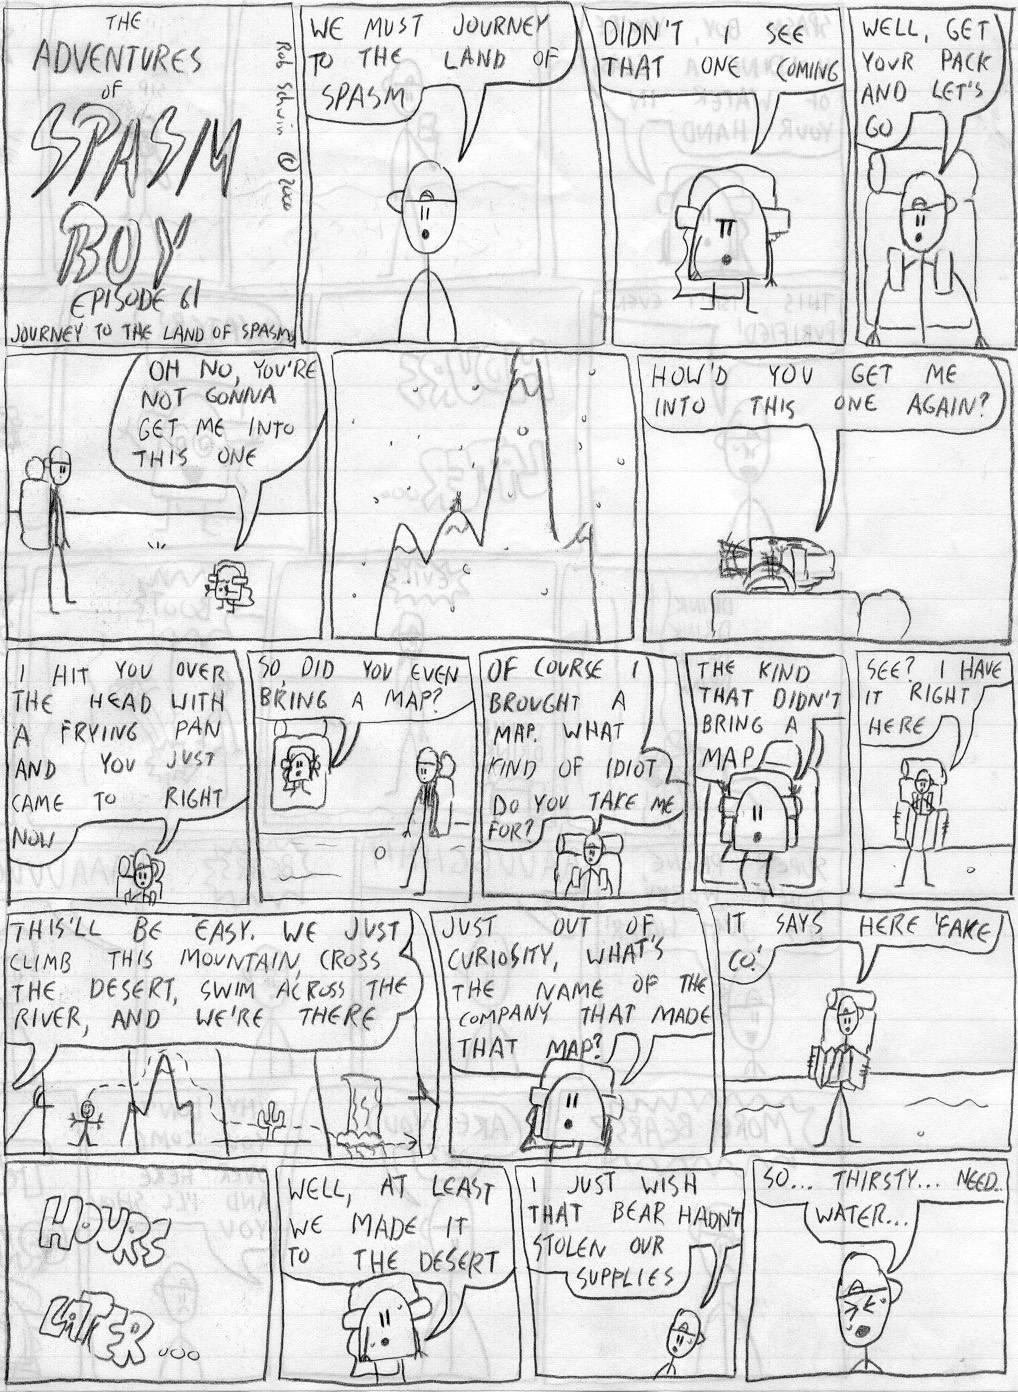 THE
ADVENTURES
OF
SPASM
BOY
EPISODE 61
JOURNEY TO THE LAND OF SPASM
Rob Schwin © 2000
WE MUST JOURNEY
TO THE LAND OF
SPASM
DIDN'T I SEE
THAT ONE COMING
WELL, GET
YOUR PACK
AND LET'S
GO
OH NO, YOU'RE
NOT GONNA
GET ME INTO
THIS ONE
HOW'D YOU GET ME
INTO THIS ONE AGAIN?
I HIT YOU OVER
THE HEAD WITH
A FRYING PAN
AND YOU JUST
CAME TO RIGHT
NOW
SO, DID YOU EVEN
BRING A MAP?
OF COURSE I
BROUGHT A
MAP. WHAT
KIND OF IDIOT
DO YOU TAKE ME
FOR?
THE KIND
THAT DIDN'T
BRING A
MAP
SEE? I HAVE
IT RIGHT
HERE
THIS'LL BE EASY. WE JUST
CLIMB THIS MOUNTAIN, CROSS
THE DESERT, SWIM ACROSS THE
RIVER, AND WE'RE THERE
JUST OUT OF
CURIOSITY, WHAT'S
THE NAME OF THE
COMPANY THAT MADE
THAT MAP?
IT SAYS HERE 'FAKE
CO.'
HOURS
LATER...
WELL, AT LEAST
WE MADE IT
TO THE DESERT
I JUST WISH
THAT BEAR HADN'T
STOLEN OUR
SUPPLIES
SO... THIRSTY... NEED..
WATER...